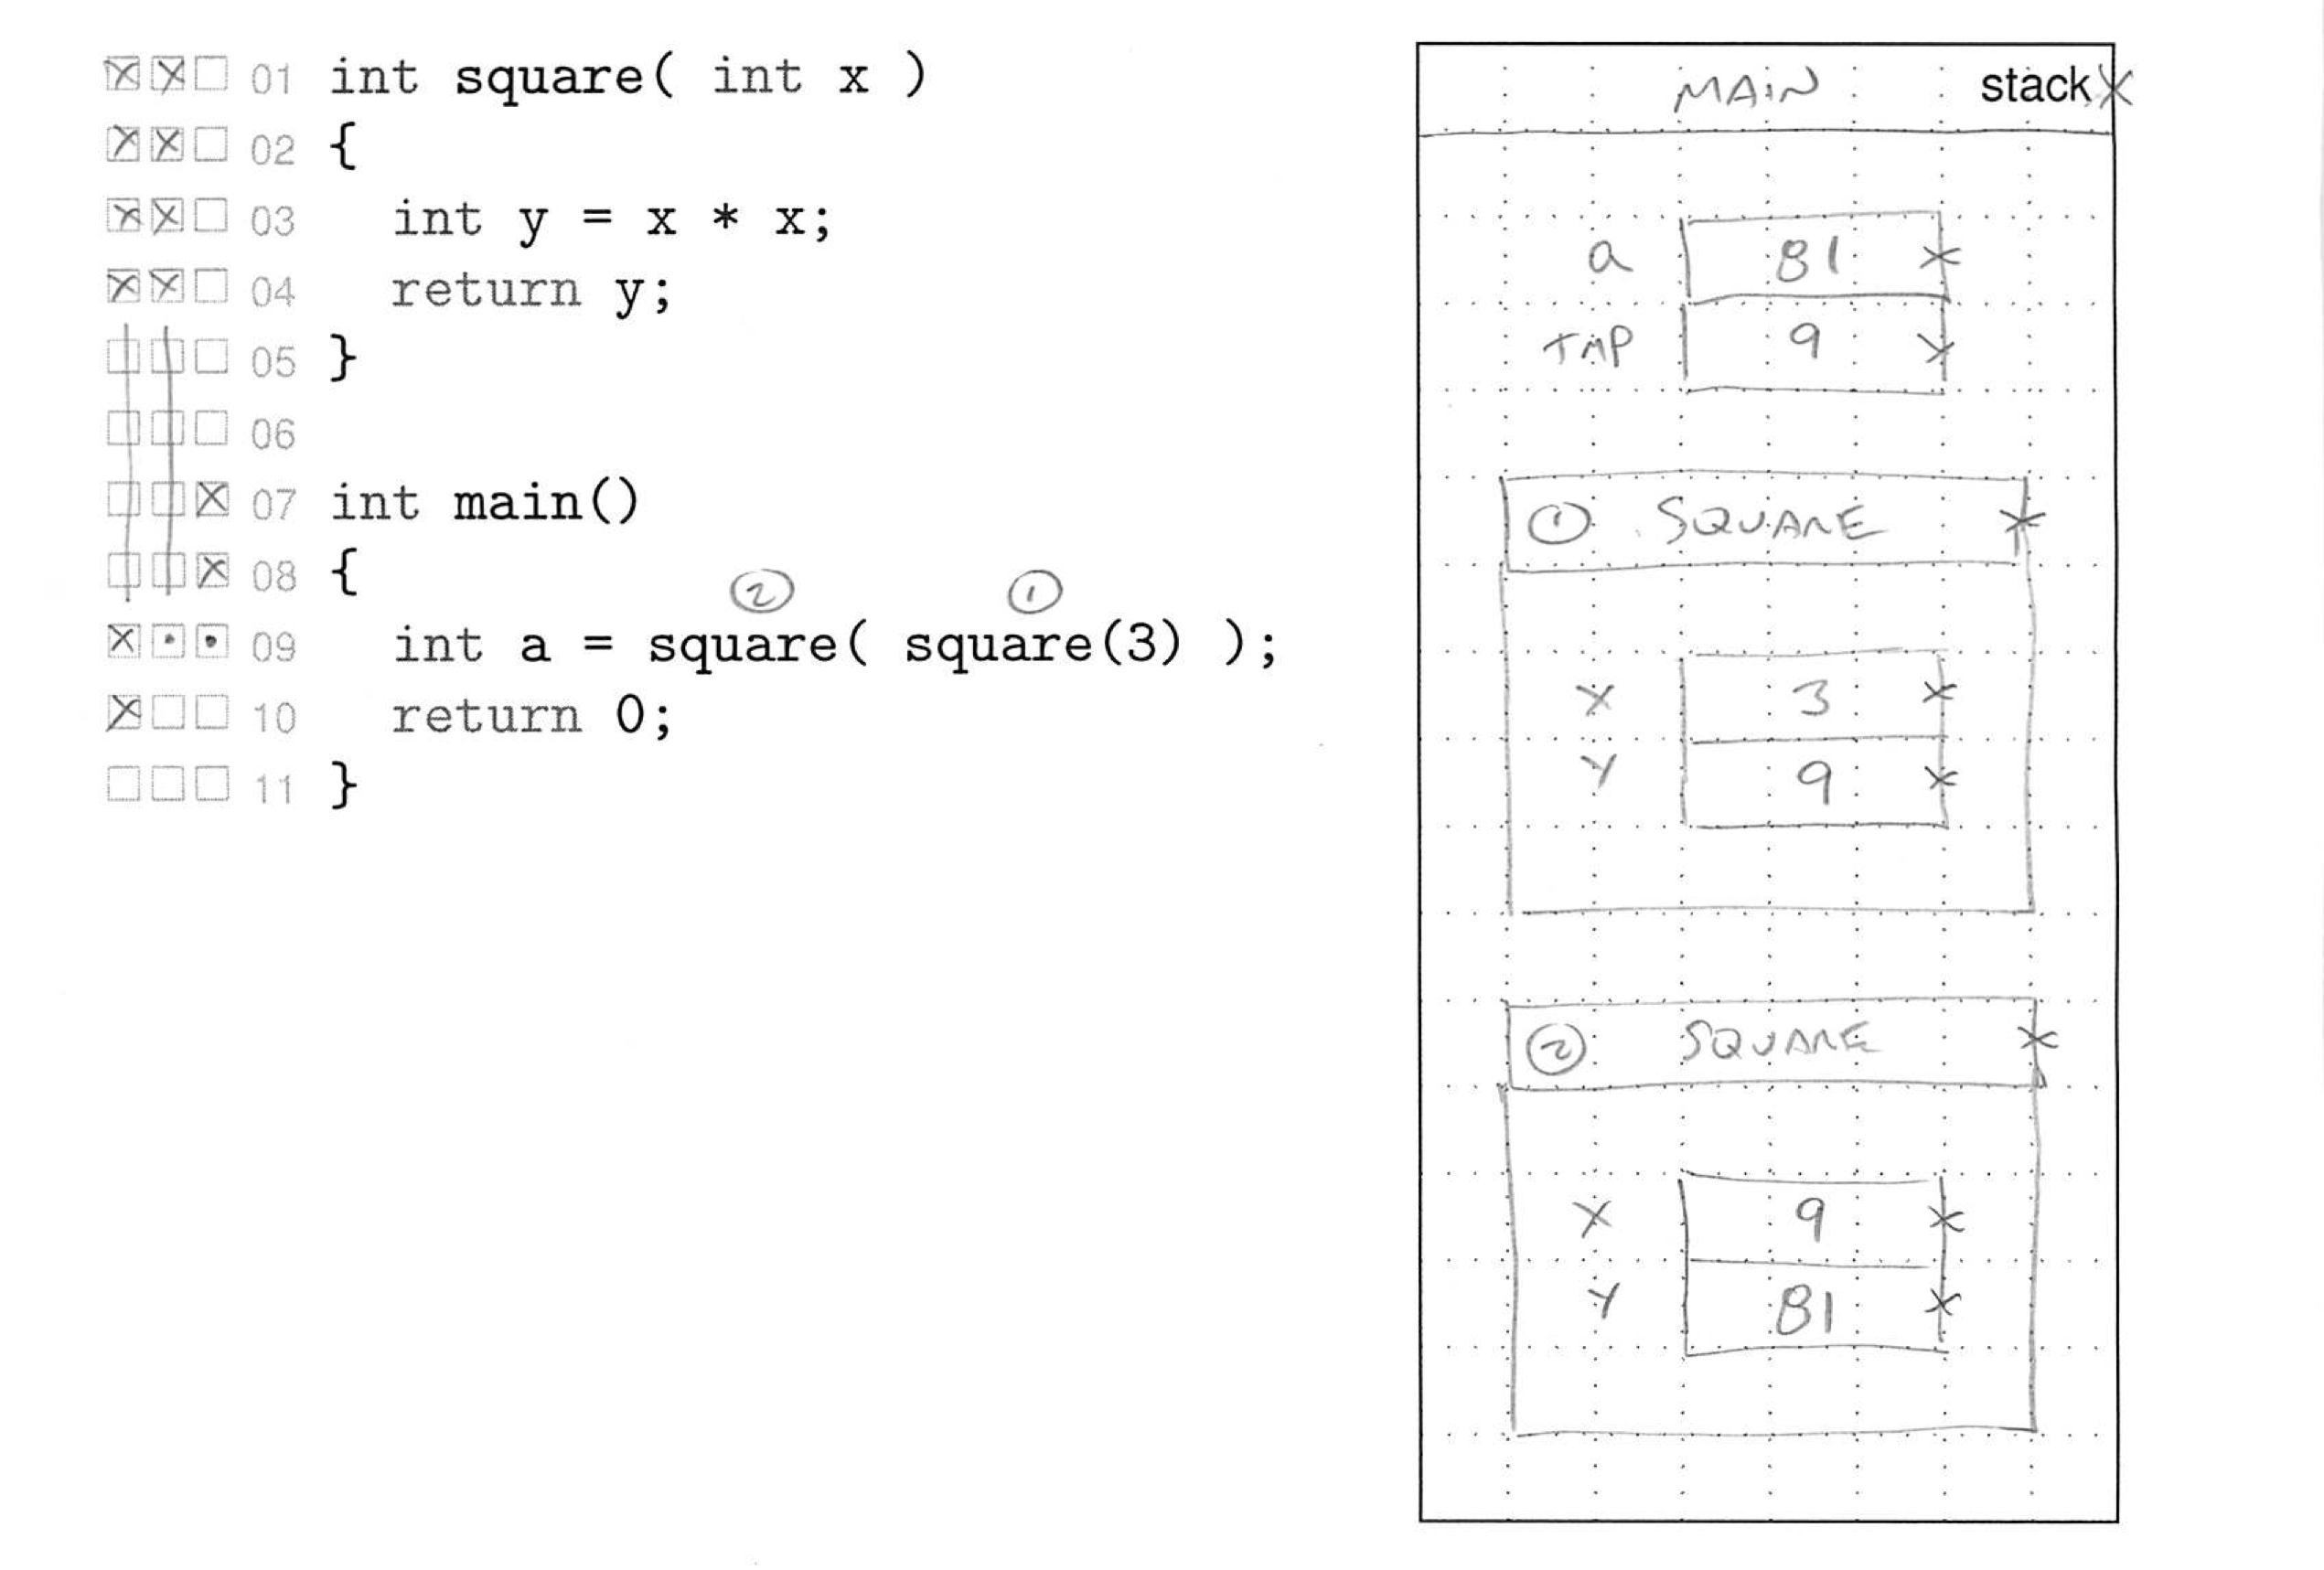 01 int square( int x )
02 {
03 int y = x * x;
04 return y;
05 }
06
07 int main()
08 {
② ①
09 int a = square( square(3) );
10 return 0;
11 }
MAIN stack
a 81
TMP 9
① SQUARE
X 3
Y 9
② SQUARE
X 9
Y 81